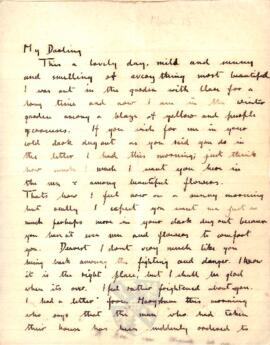 My Darling
This a lovely day, mild and sunny
and smelling of everything most beautiful
I was out in the garden with Claes for a
long time and now I am in the winter
garden among a blaze of yellow and purple
crocuses. If you wish for me in your
cold dark dug out as you said you do in
the letter I had this morning, just think
how much I want you here in
the sun & among beautiful flowers.
Thats how I feel now on a sunny morning
but really I expect you want me just as
much perhaps more in your dark dug out because
you havent use sun and flowers to comfort
you. Dearest I dont very much like you
being back among the fighting and danger. I know
it is the right place, but I shall be glad
when its over. I feel rather frightened about you.
I had a letter from this morning
who says that the men who had taken
their house has been suddenly ordered to